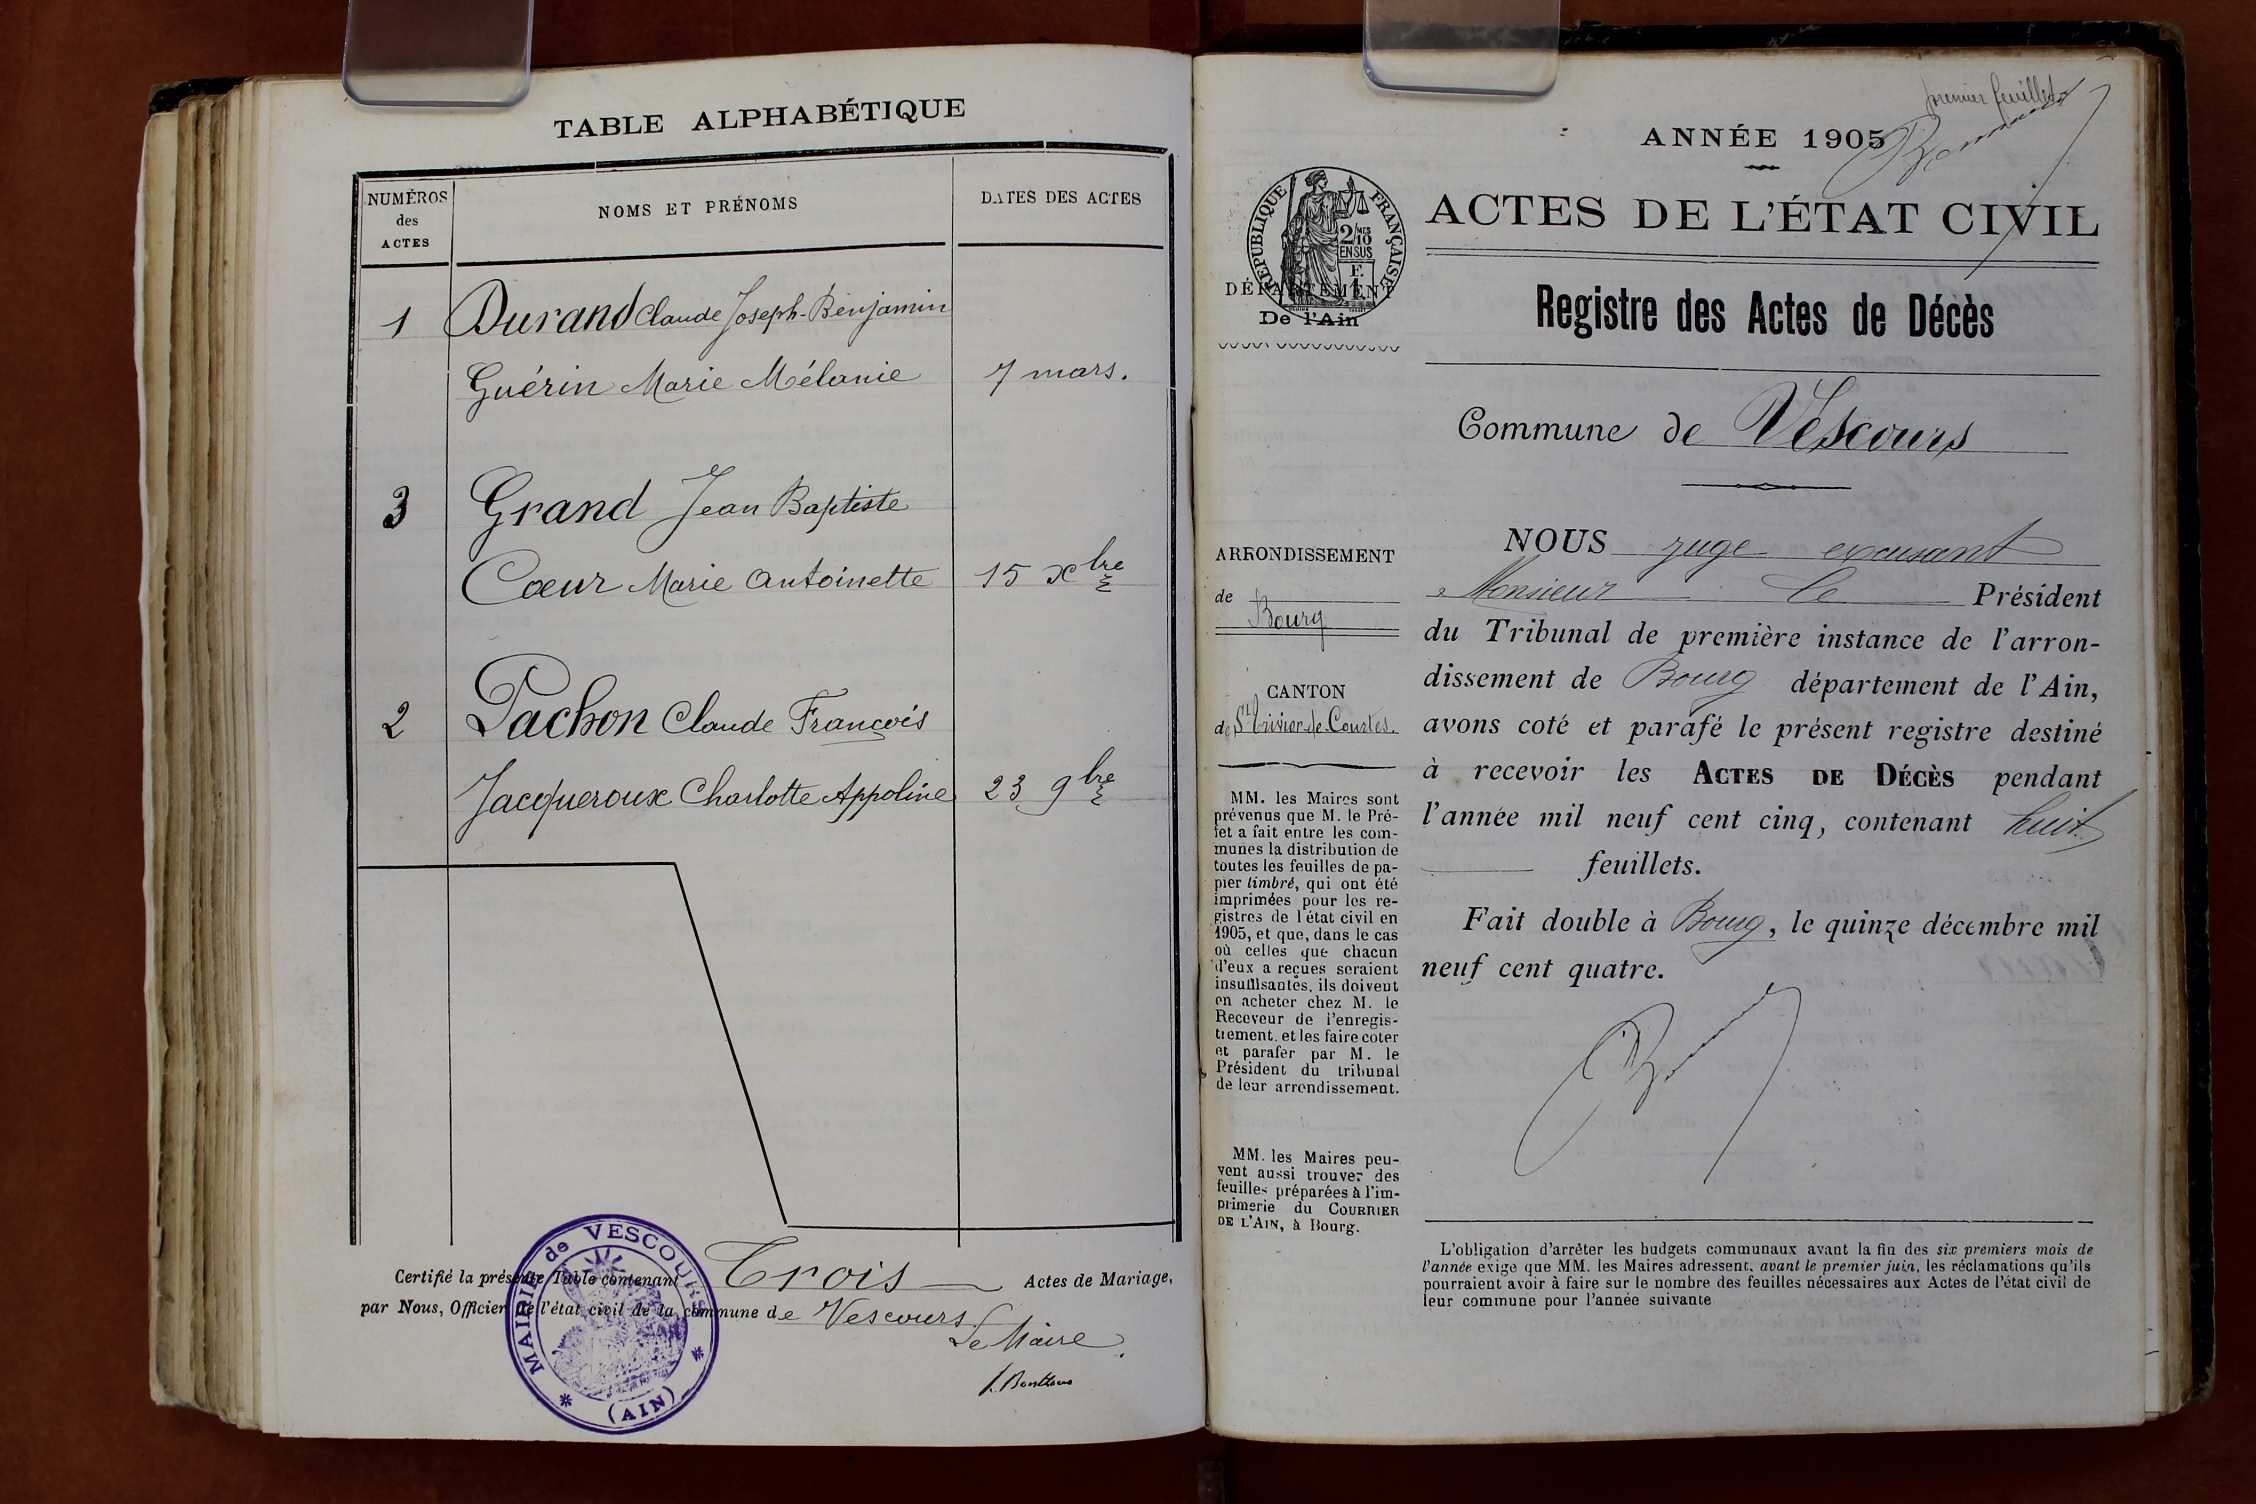 TABLE ALPHABÉTIQUE
NUMÉROS des ACTES
NOMS ET PRÉNOMS
DATES DES ACTES
1 Durand Claude Joseph-Benjamin
Guérin Marie Mélanie 7 mars.
3 Grand Jean Baptiste
Cœur Marie Antoinette 15 xbre
2 Pachon Claude François
Jacqueroux Charlotte Appoline 23 9bre
Certifié la présente Table contenant Trois Actes de Mariage,
par Nous, Officier de l'état civil de la commune de Vescours
Le Maire.
MAIRIE de VESCOURS
(AIN)
premier feuillet
ANNÉE 1905
ACTES DE L'ÉTAT CIVIL
RÉPUBLIQUE FRANÇAISE
2/10 MES
EN SUS
F.
1
DÉPARTEMENT
De l'Ain
Registre des Actes de Décès
Commune de Vescours
ARRONDISSEMENT
de
Bourg
CANTON
de St Trivier de Courtes.
MM. les Maires sont
prévenus que M. le Pré-
fet a fait entre les com-
munes la distribution de
toutes les feuilles de pa-
pier timbré, qui ont été
imprimées pour les re-
gistres de l'état civil en
1905, et que, dans le cas
où celles que chacun
d'eux a reçues seraient
insuffisantes, ils doivent
en acheter chez M. le
Receveur de l'enregis-
trement, et les faire coter
et parafer par M. le
Président du tribunal
de leur arrondissement.
MM. les Maires peu-
vent aussi trouver des
feuilles préparées à l'im-
primerie du COURRIER
DE L'AIN, à Bourg.
NOUS juge excusant
Monsieur le Président
du Tribunal de première instance de l'arron-
dissement de Bourg département de l'Ain,
avons coté et parafé le présent registre destiné
à recevoir les ACTES DE DÉCÈS pendant
l'année mil neuf cent cinq, contenant huit
feuillets.
Fait double à Bourg, le quinze décembre mil
neuf cent quatre.
L'obligation d'arrêter les budgets communaux avant la fin des six premiers mois de
l'année exige que MM. les Maires adressent, avant le premier juin, les réclamations qu'ils
pourraient avoir à faire sur le nombre des feuilles nécessaires aux Actes de l'état civil de
leur commune pour l'année suivante